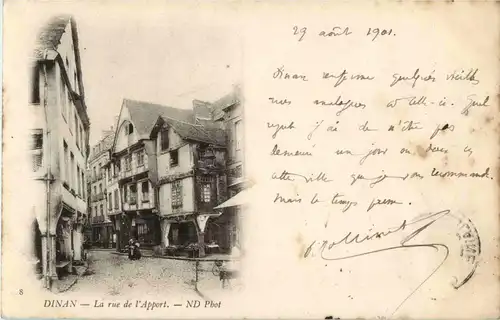 29 août 1901.
Dinan renferme quelques vieilles
rues analogues à celle-ci. Quel
regret j'ai de n'être pas
demeuré un jour ou deux
cette ville que je vous recommande.
Mais le temps presse.
8
DINAN — La rue de l'Apport. — ND Phot